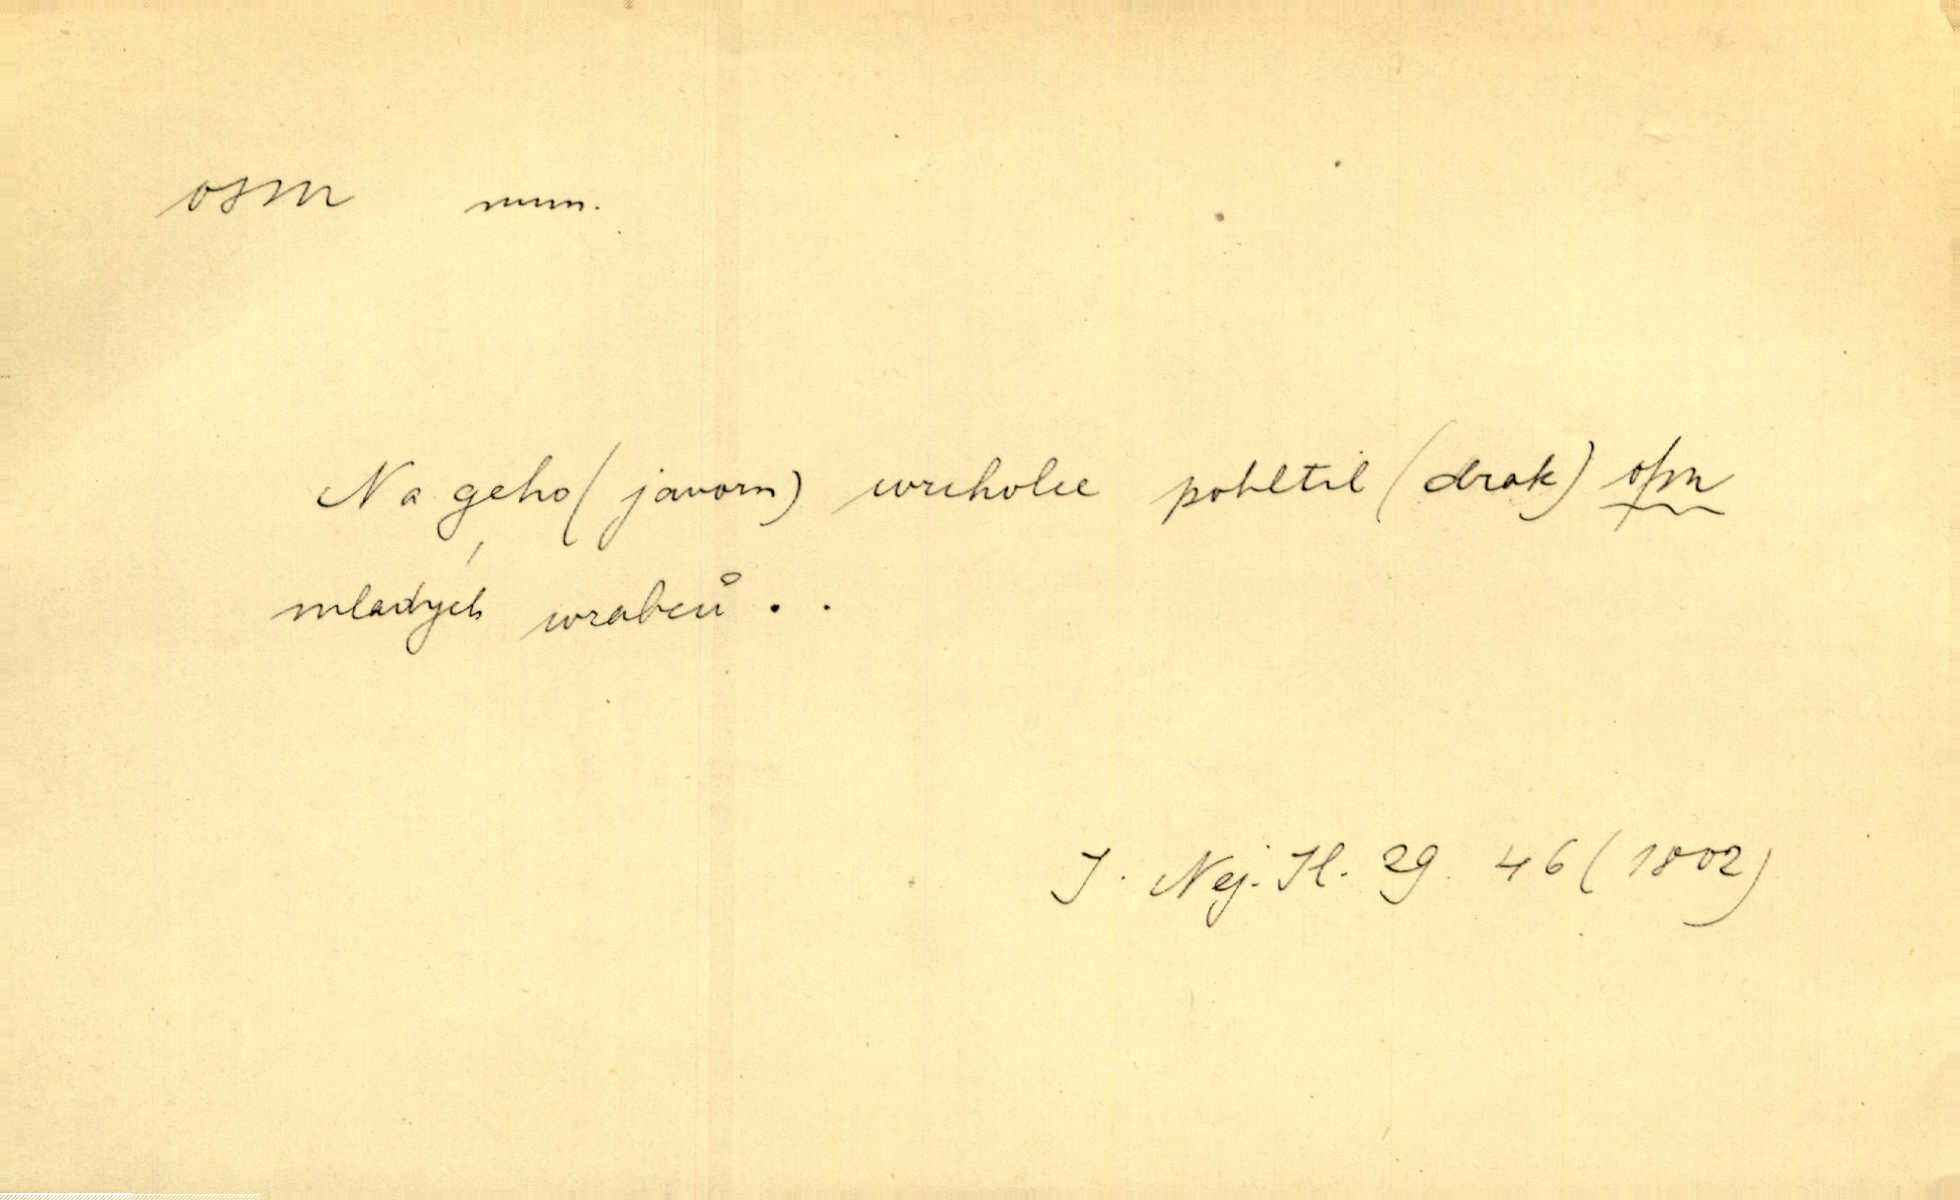 osm num.
Na geho (javoru) wrcholce pohltil (drak) oſm
mladých wrabců . .
J. Nej. Il. 29. 46 (1802)